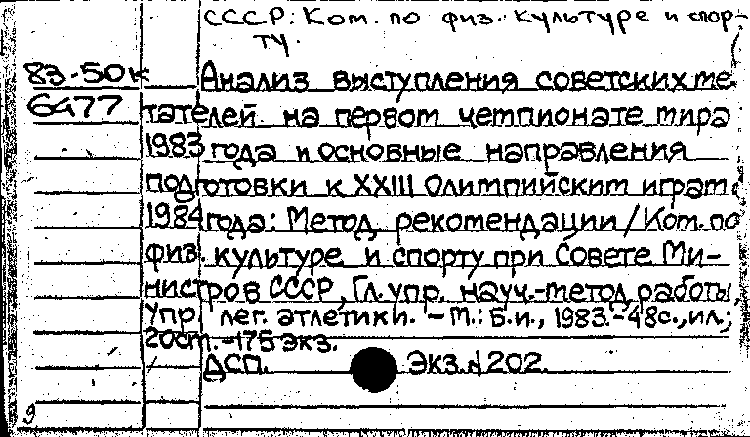 СССР: Ком. по физ. культуре и спор-
ту.
83-50к Анализ выступления советских ме-
6477 тателей на первом чемпионате мира
1983 года и основные направления
подготовки к XXIII Олимпийским играм
1984 года: Метод. рекомендации / Ком. по
физ. культуре и спорту при Совете Ми-
нистров СССР, Гл. упр. науч.-метод. работы,
Упр. лег. атлетики. - М.: Б.и., 1983. - 48с., ил.;
20см. - 175 экз.
ДСП. Экз. № 202.
9